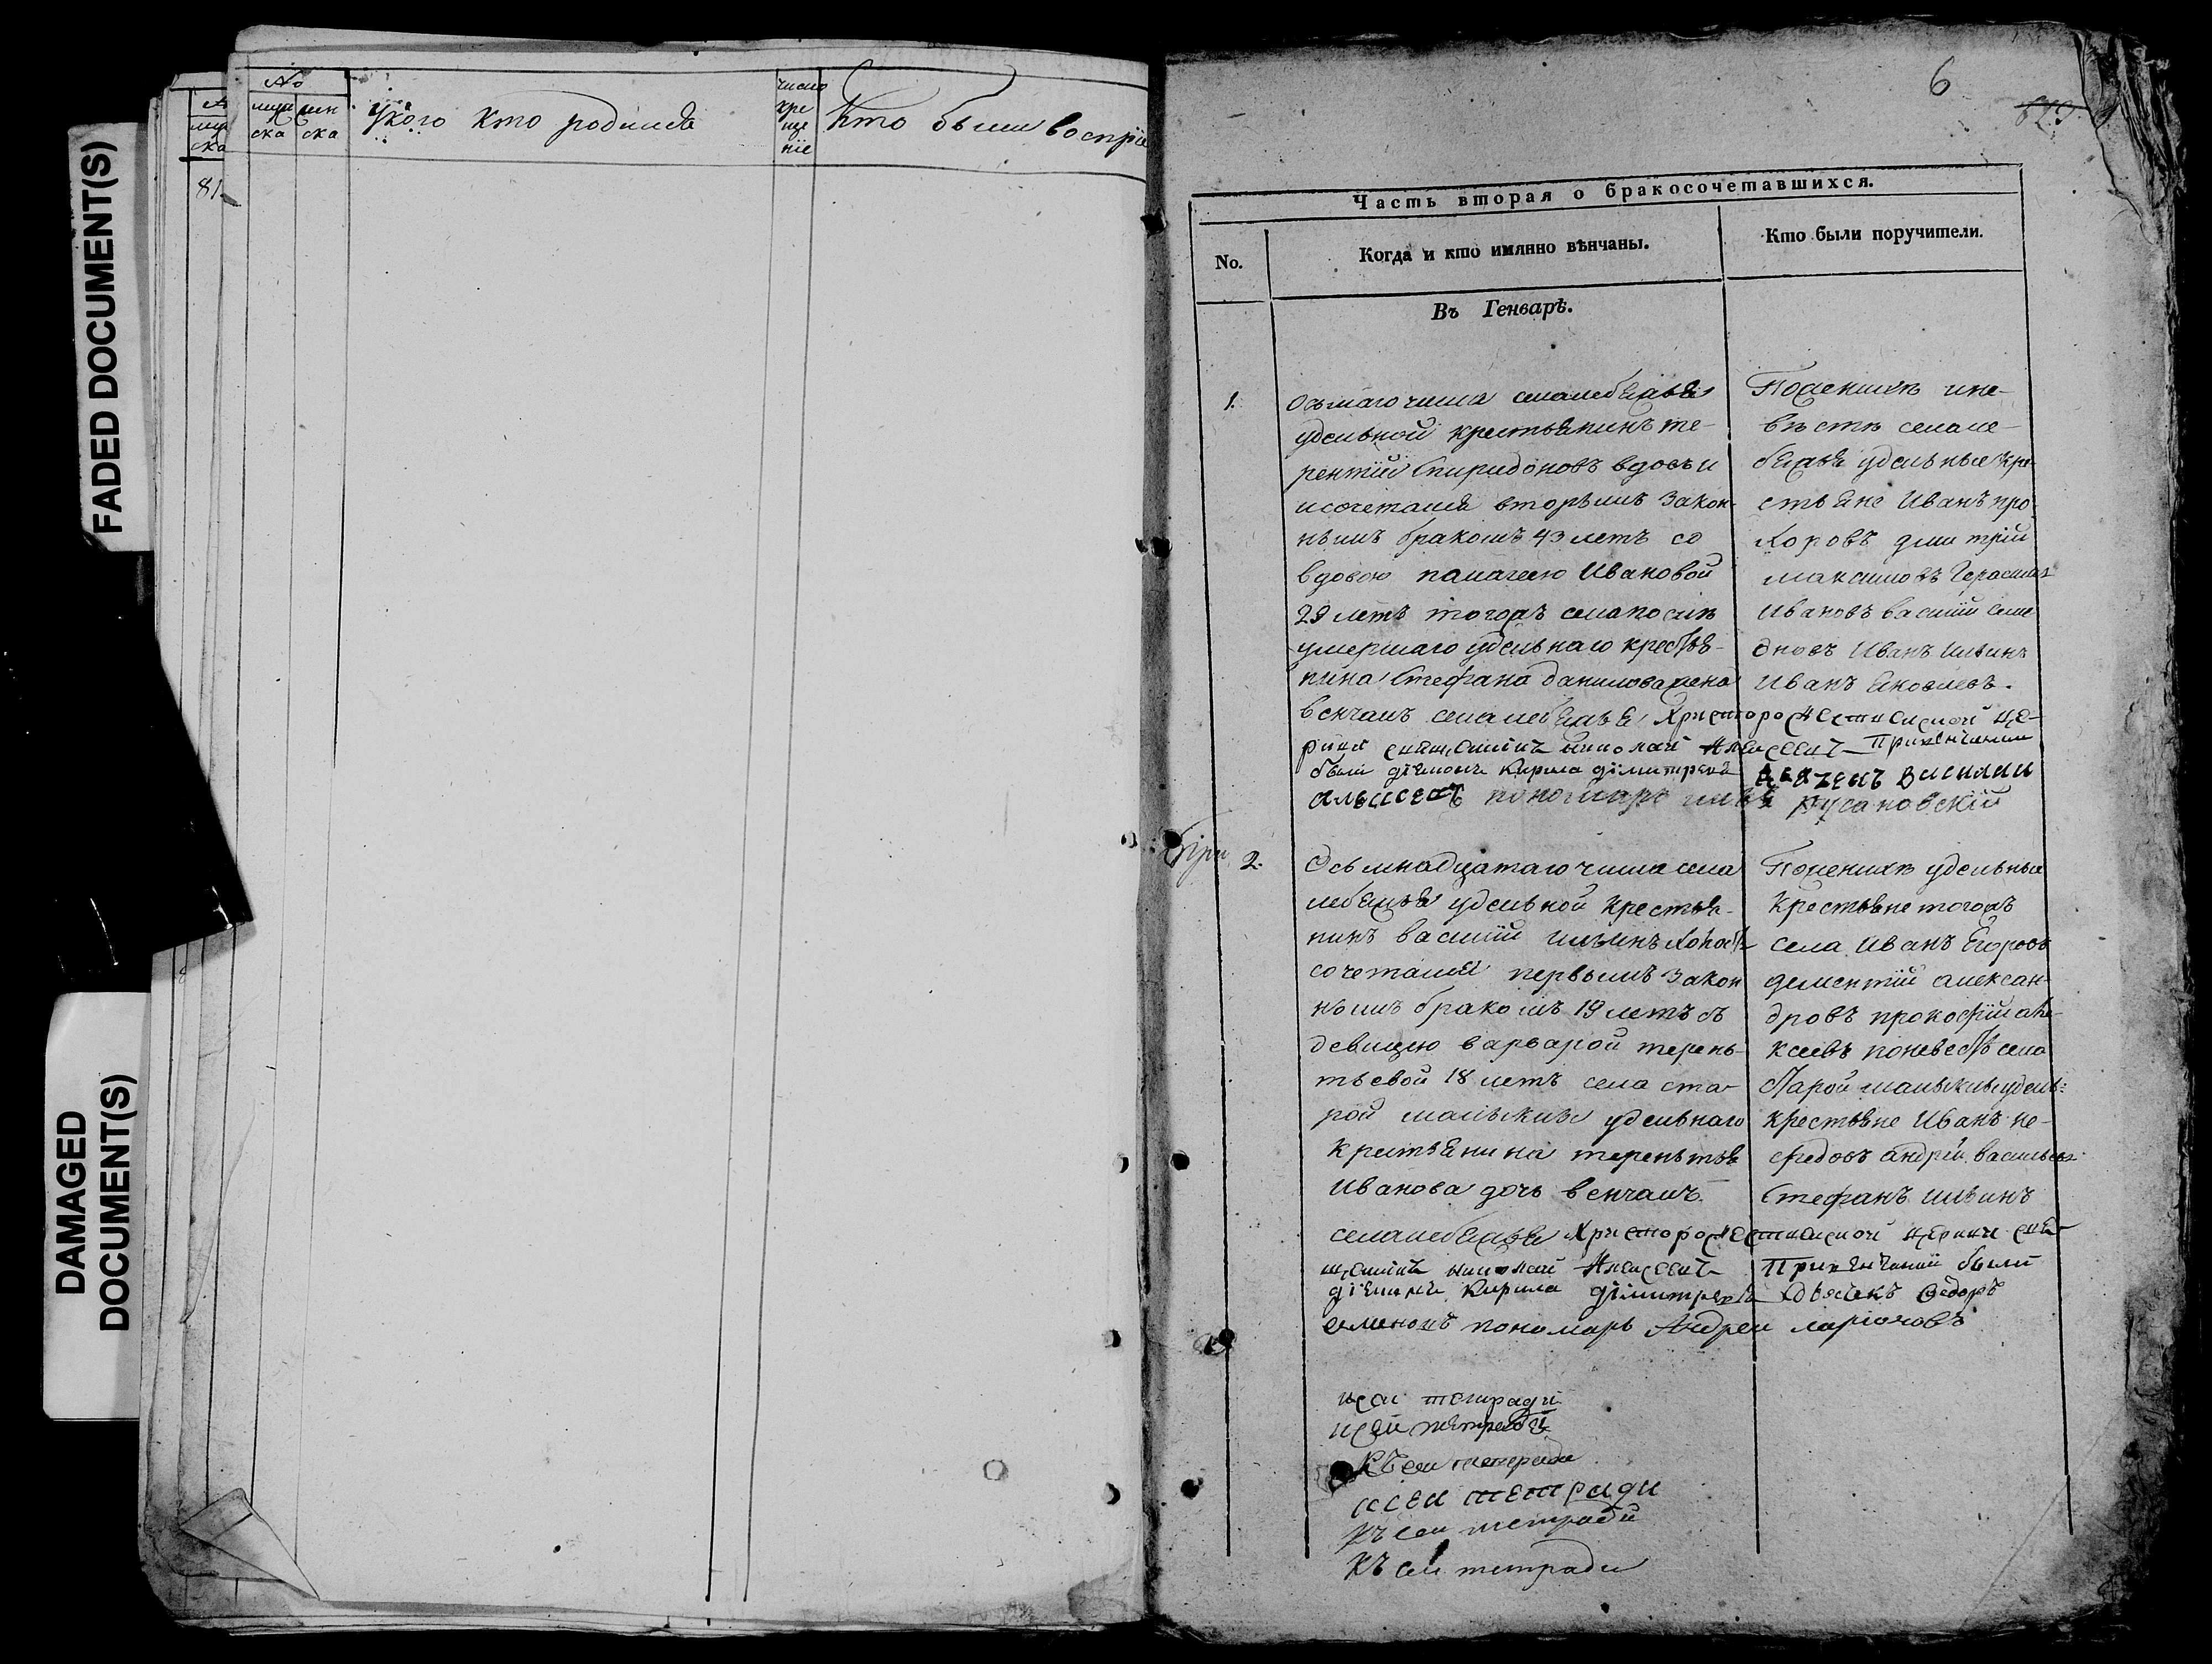 FADED DOCUMENT(S)
DAMAGED DOCUMENT(S)
№
муже
ска
жен
ска
У кого кто родился
число
кре
ще
нїе
Кто были воспрїе
81
6
Часть вторая о бракосочетавшихся.
No.
Когда и кто имянно вѣнчаны.
Кто были поручители.
Въ Генварѣ.
1.
Осьмаго числа села лебяжья
удельной крестьянинъ те-
рентїй Спиридоновъ вдовъ и
и сочетался вторымъ закон-
нымъ бракомъ 43 летъ со
вдовою палагеею Ивановой
29 летъ тогожъ села после
умершаго удельнаго крестья-
нина Стефана данилова жена
венчалъ села лебяжья Христорождественской це-
ркви священникъ николай Алексеевъ При венчании
были дїаконъ Кирила дїмитреевъ
пономарь
русановскїй
По женихе и не-
весте села ле-
бяжья удельные кре-
стьяне Иванъ про
хоровъ дмитрїй
максимовъ Герасимъ
Ивановъ василїй семе
новъ Иванъ Ильинъ
Иванъ Яковлевъ.
2.
Осьмнадцатаго числа села
лебяжья удельной крестья-
нинъ василїй ильинъ холостъ
сочетался первымъ закон
нымъ бракомъ 19 летъ съ
девицею варварой терень-
тьевой 18 летъ села ста-
рой малыклы удельнаго
крестьянина терентья
Иванова дочь венчалъ
села лебяжья Христорождественской церкви свя-
щенникъ николай Алексеевъ При венчании были
дїаконъ Кирила дїмитреевъ дьячекъ Федоръ
семеновъ пономарь Андреи ларїоновъ
По женихе удельные
крестьяне тогожъ
села Иванъ Егоровъ
дементїй алексан-
дровъ прокофїй але-
ксеевъ по невесте села
старой малыклы удель:
крестьяне Иванъ не-
федовъ андрей васильевъ
Стефанъ ильинъ
к сеи тетради
к сей тетради
Къ сеи тетради
к сеи тетради
къ сеи тетради
къ сеи тетради